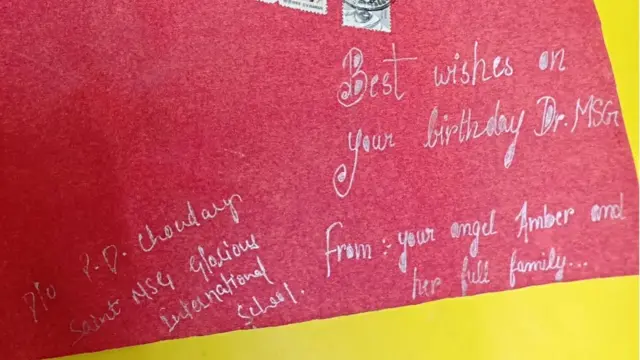 Best wishes on
your birthday Dr. MSG
from : your angel Amber and
her full family...
P/o P.D. Choudary
Saint MSG Glorious
International
School.